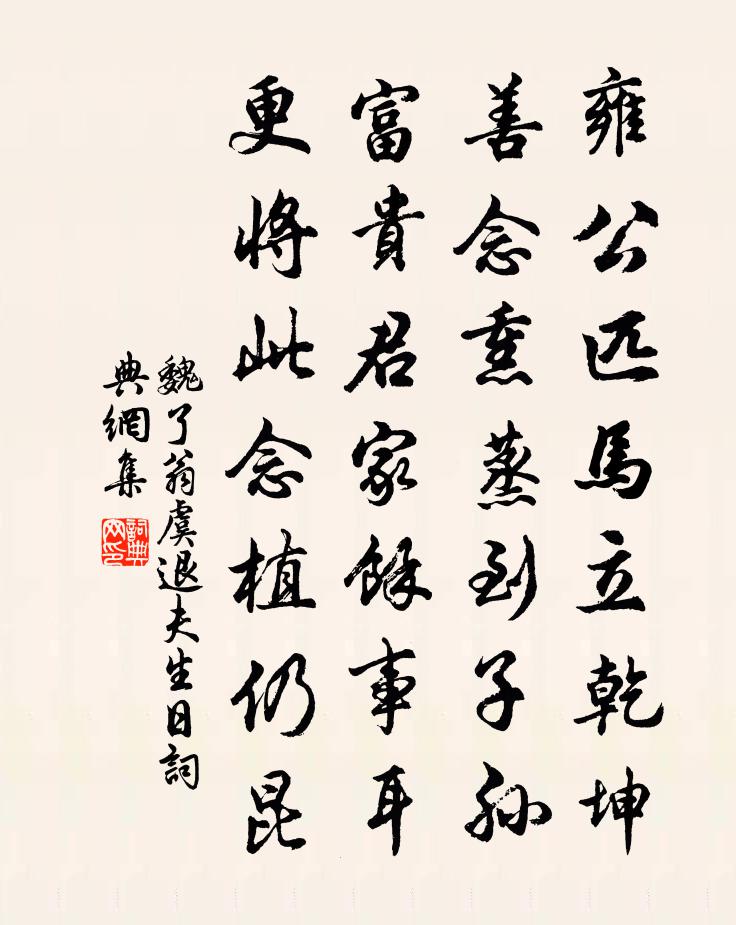 雍公匹馬立乾坤
善念熏蒸到子孫
富貴君家餘事耳
更將此念植仍昆
魏了翁虞退夫生日詞
典網集
詞典網印